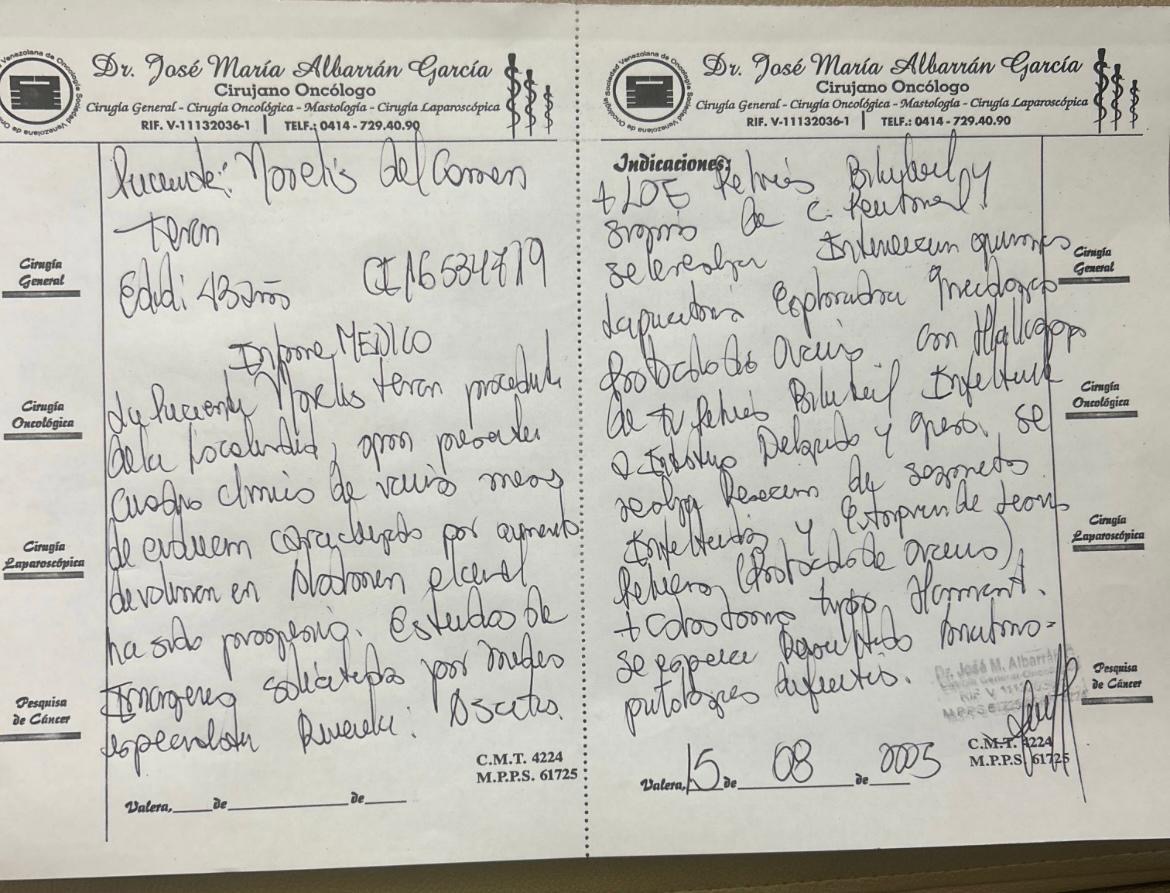 Dr. José María Albarrán García
Cirujano Oncólogo
Cirugía General - Cirugía Oncológica - Mastología - Cirugía Laparoscópica
RIF. V-11132036-1 | TELF.: 0414 - 729.40.90
Norelis del Carmen
Teran
Edad: 43 años CI 16534719
Informe MEDICO
La Paciente Norelis Teran procedente
de la Localidad, quien presenta
cuadro clinico de varios meses
de evolucion caracterizado por aumento
de volumen en Abdomen el cual
ha sido progresivo. Estudios de
Imagenes solicitados por medico
especialista : Ascitis.
Cirugía
General
Cirugía
Oncológica
Cirugía
Laparoscópica
Pesquisa
de Cáncer
C.M.T. 4224
M.P.P.S. 61725
Valera,____de____________de____
Dr. José María Albarrán García
Cirujano Oncólogo
Cirugía General - Cirugía Oncológica - Mastología - Cirugía Laparoscópica
RIF. V-11132036-1 | TELF.: 0414 - 729.40.90
Indicaciones:
+ LOE Pelvis Bilateral y
de C. Peritoneal,
se realiza Intervencion
Laparotomia Exploradora Ginecologica
Protocolo de Ovario. con Hallazgos
de TV Pelvis Bilateral
a Intestino Delgado y grueso. se
realiza Reseccion de segmento
Intestinal y de
(Protocolo de ovario)
+ Colostomia tipo Hartmant.
se espera Resultado Anatomo-
patologico
Cirugía
General
Cirugía
Oncológica
Cirugía
Laparoscópica
Pesquisa
de Cáncer
Dr. José M. Albarrán
C.M.T. 4224
M.P.P.S. 61725
Valera, 15 de 08 de 2025